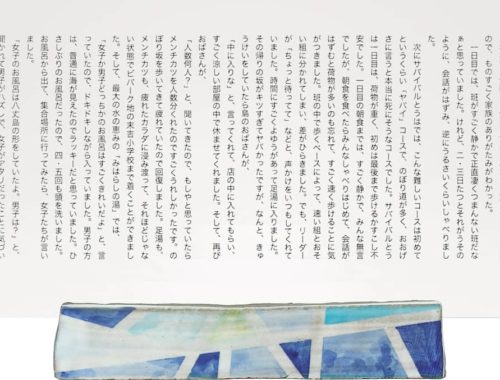 ので、ものすごく家族のありがたみがわかった。
　一日目では、班がすごく静かで正直凄くつまんない班だな
ぁと思っていました。けれど、二・三日たつとそれがうその
ように、会話がはずみ、逆にうるさいくらいしゃべりまし
た。
　次にサバイバルとうはでは、こんな難しいコースは初めて
というぐらい、「ヤバイ」コースで、のぼり道が多く、おおげ
さに言うと本当に死にそうなコースでした。サバイバルとう
は一日目は、荷物が重く、初めは最後まで歩けるかすこし不
安でした。一日目の朝食までは、すごく静かで、みんな無言
でしたが、朝食を食べたらみんなしゃべりはじめて、会話が
はずむと荷物が多いのも忘れて、すごく速く歩けることに気
がつきました。班の中で歩くペースによって、速い組とおそ
い組に分かれてしまい、差がひらきました。でも、リーダー
が「ちょっと待ってて」などと、声かけをいつもしてくれて
いました。時間にすごくよゆうがあって足湯に入りました。
その帰りの坂がキツすぎてヤバかったですが、なんと、きゅ
うけいをしていたら島のおばさんが、
「中に入りな」と、言ってくれて、店の中に入れてもらい、
すごく涼しい部屋の中で休ませてくれました。そして、再び
おばさんが、
「人数何人？」と、聞いてきたので、もしやと思っていたら
メンチカツを人数分くれたのですごくうれしかったです。の
ぼり坂を歩いてきて疲れていたので回復しました。足湯も、
メンチカツも、疲れたカラダに浸み渡って、それほどじゃな
い状態でビバーク地の末吉小学校まで着くことができまし
た。そして、最大の水の恵みの「みはらしの湯」では、
「女子か男子どっちかのお風呂はすごくきれいだよ」と、言
っていたので、ドキドキしながら入っていました。男子の方
は、普通に海が見えたのでラッキーだと思っていました。ひ
さしぶりのお風呂だったので、四・五回も頭を洗いました。
お風呂から出て、集合場所に行ってみたら、女子たちが言い
ました。
「女子のお風呂は八丈島の形をしていたよ。男子は？」と、
聞かれて男子がハズレで、女子がアタリだったことに気づい